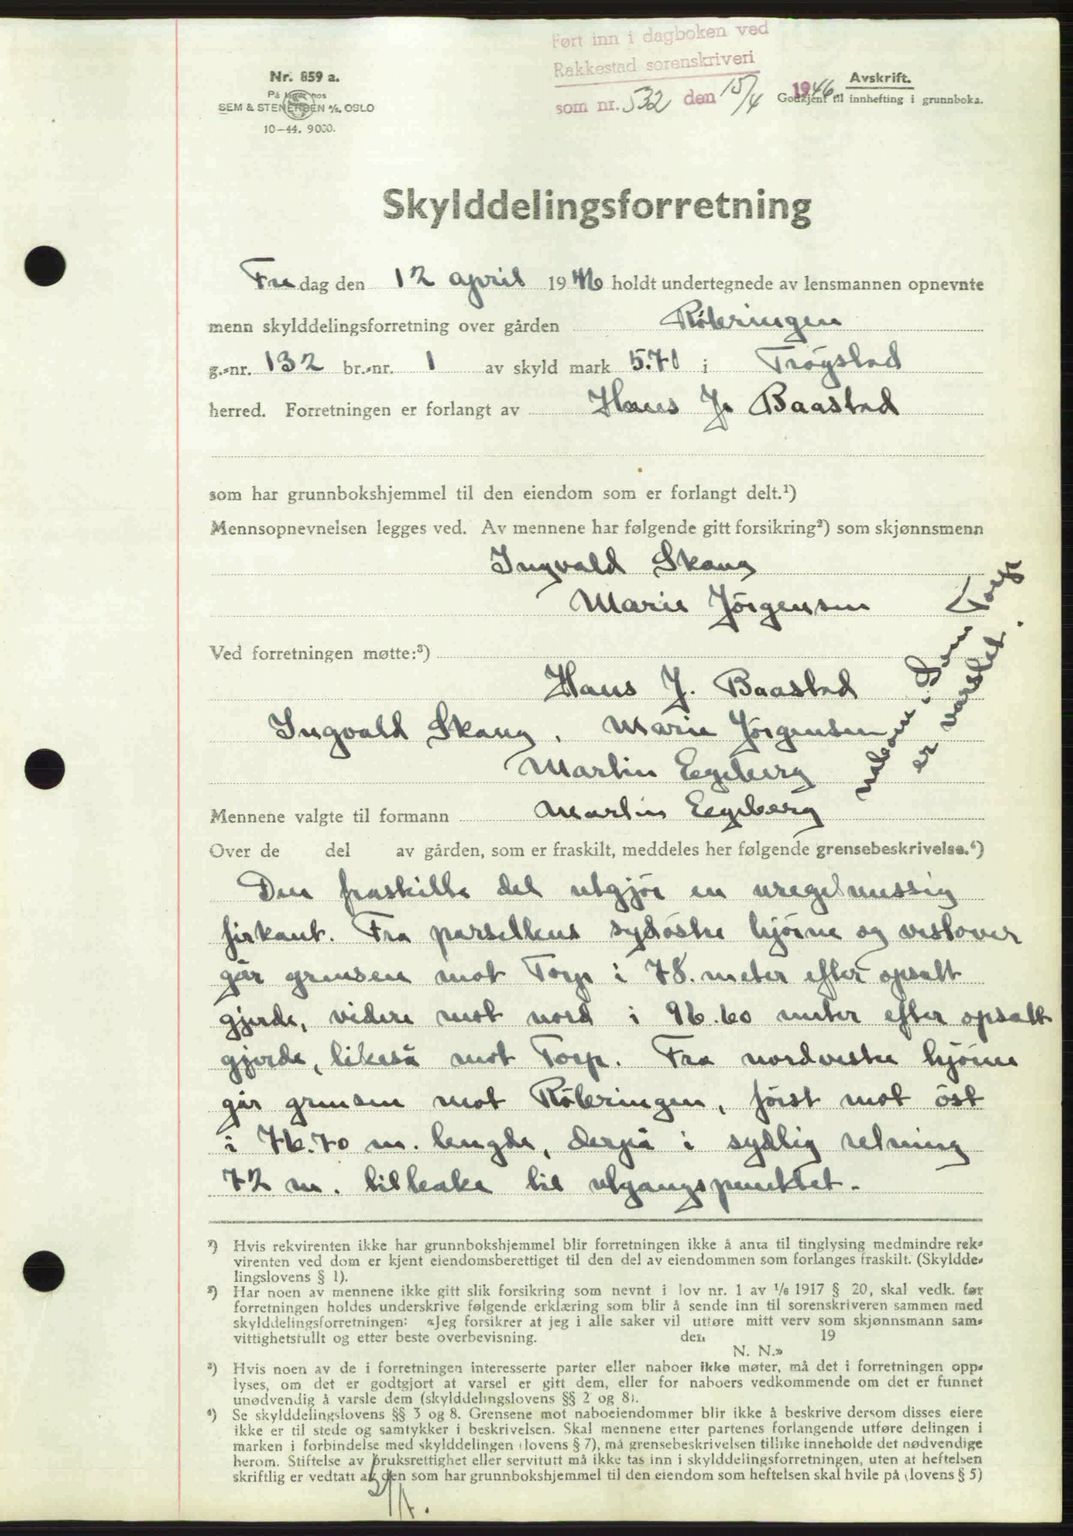 Ført inn i dagboken ved
Rakkestad sorenskriveri
som nr. 532 den 15/4 1946.
Avskrift.
Godkjent til innhefting i grunnboka.
Nr. 859 a.
På lager hos
SEM & STENERSEN A/S. OSLO
10—44. 9000.
Skylddelingsforretning
Fredag den 12 april 1946 holdt undertegnede av lensmannen opnevnte
menn skylddelingsforretning over gården Röteringen
g.-nr. 132 br.-nr. 1 av skyld mark 5.71 i Trögstad
herred. Forretningen er forlangt av Hans J. Baastad
som har grunnbokshjemmel til den eiendom som er forlangt delt.¹)
Mennsopnevnelsen legges ved. Av mennene har følgende gitt forsikring²) som skjønnsmenn
Ingvald Skaug
Marie Jörgensen
Ved forretningen møtte:³)
Hans J. Baastad
Ingvald Skaug, Marie Jörgensen
Martin Eegeberg
naboen
Torp
er varslet.
Mennene valgte til formann Martin Eegeberg
Over de del av gården, som er fraskilt, meddeles her følgende grensebeskrivelse.⁴)
Den fraskilte del utgjör en uregelmessig
firkant. Fra parsellens sydöstre hjörne og vestover
går grensen mot Torp i 78. meter efter opsatt
gjerde, videre mot nord i 96.60 meter efter opsatt
gjerde, likeså mot Torp. Fra nordvestre hjörne
går grensen mot Röteringen, först mot öst
i 76.70 m. lengde, derpå i sydlig retning
72 m. tilbake til utgangspunktet.
¹) Hvis rekvirenten ikke har grunnbokshjemmel blir forretningen ikke å anta til tinglysing medmindre rek-
virenten ved dom er kjent eiendomsberettiget til den del av eiendommen som forlanges fraskilt. (Skyldde-
lingslovens § 1).
²) Har noen av mennene ikke gitt slik forsikring som nevnt i lov nr. 1 av 1/6 1917 § 20, skal vedk. før
forretningen holdes underskrive følgende erklæring som blir å sende inn til sorenskriveren sammen med
skylddelingsforretningen: «Jeg forsikrer at jeg i alle saker vil utføre mitt verv som skjønnsmann sam-
vittighetsfullt og etter beste overbevisning. den 19
N. N.»
³) Hvis noen av de i forretningen interesserte parter eller naboer ikke møter, må det i forretningen opp-
lyses, om det er godtgjort at varsel er gitt dem, eller for naboers vedkommende om det er funnet
unødvendig å varsle dem (skylddelingslovens §§ 2 og 8).
⁴) Se skylddelingslovens §§ 3 og 8. Grensene mot naboeiendommer blir ikke å beskrive dersom disses eiere
ikke er til stede og samtykker i beskrivelsen. Skal mennene etter partenes forlangende utføre delingen i
marken i forbindelse med skylddelingen (lovens § 7), må grensebeskrivelsen tillike inneholde det nødvendige
herom. Stiftelse av bruksrettighet eller servitutt må ikke tas inn i skylddelingsforretningen, uten at heftelsen
skriftlig er vedtatt av den som har grunnbokshjemmel til den eiendom som heftelsen skal hvile på (lovens § 5)